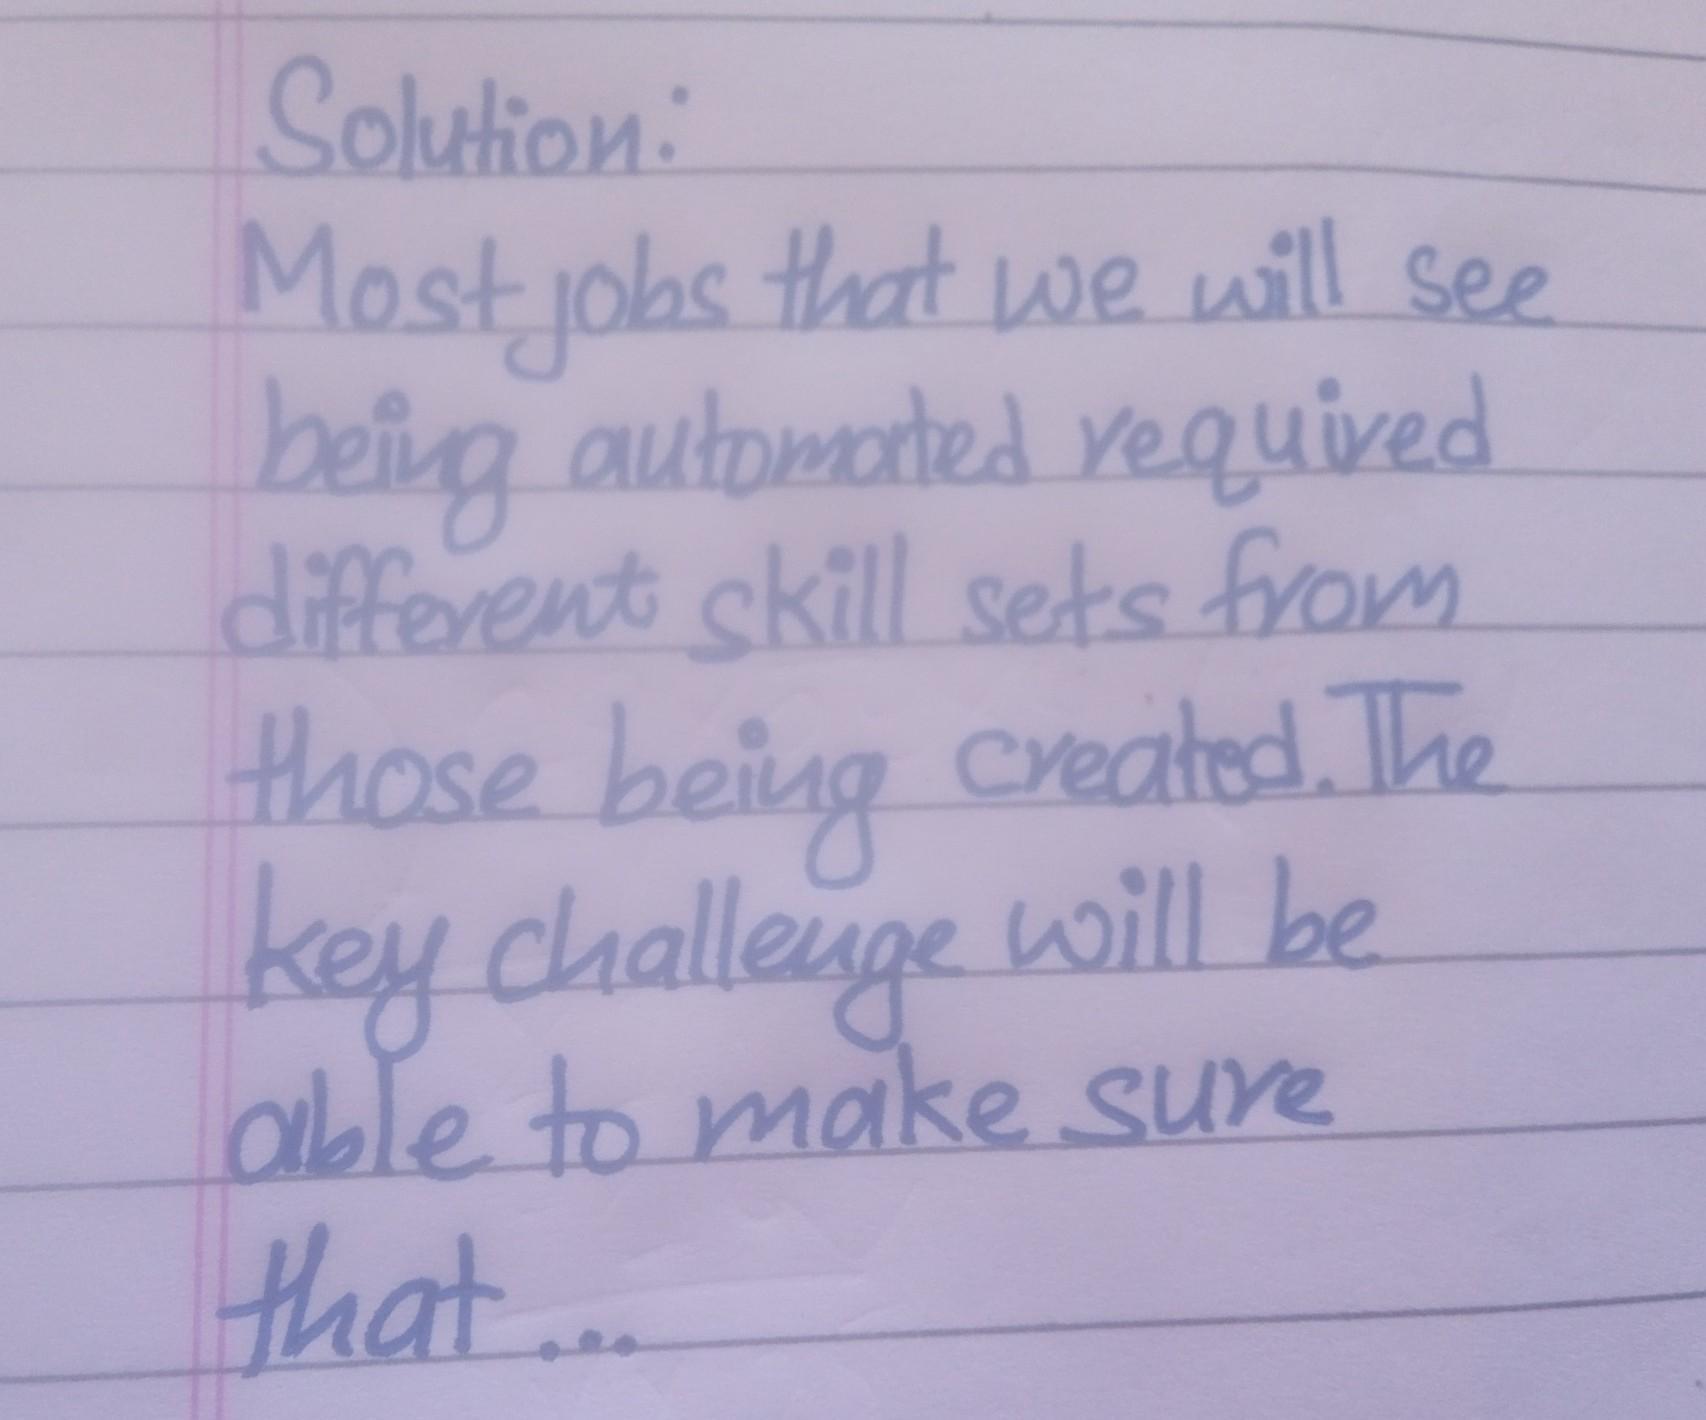 Solution:
Most jobs that we will see
being automated required
different skill sets from
those being created. The
key challenge will be
able to make sure
that ...